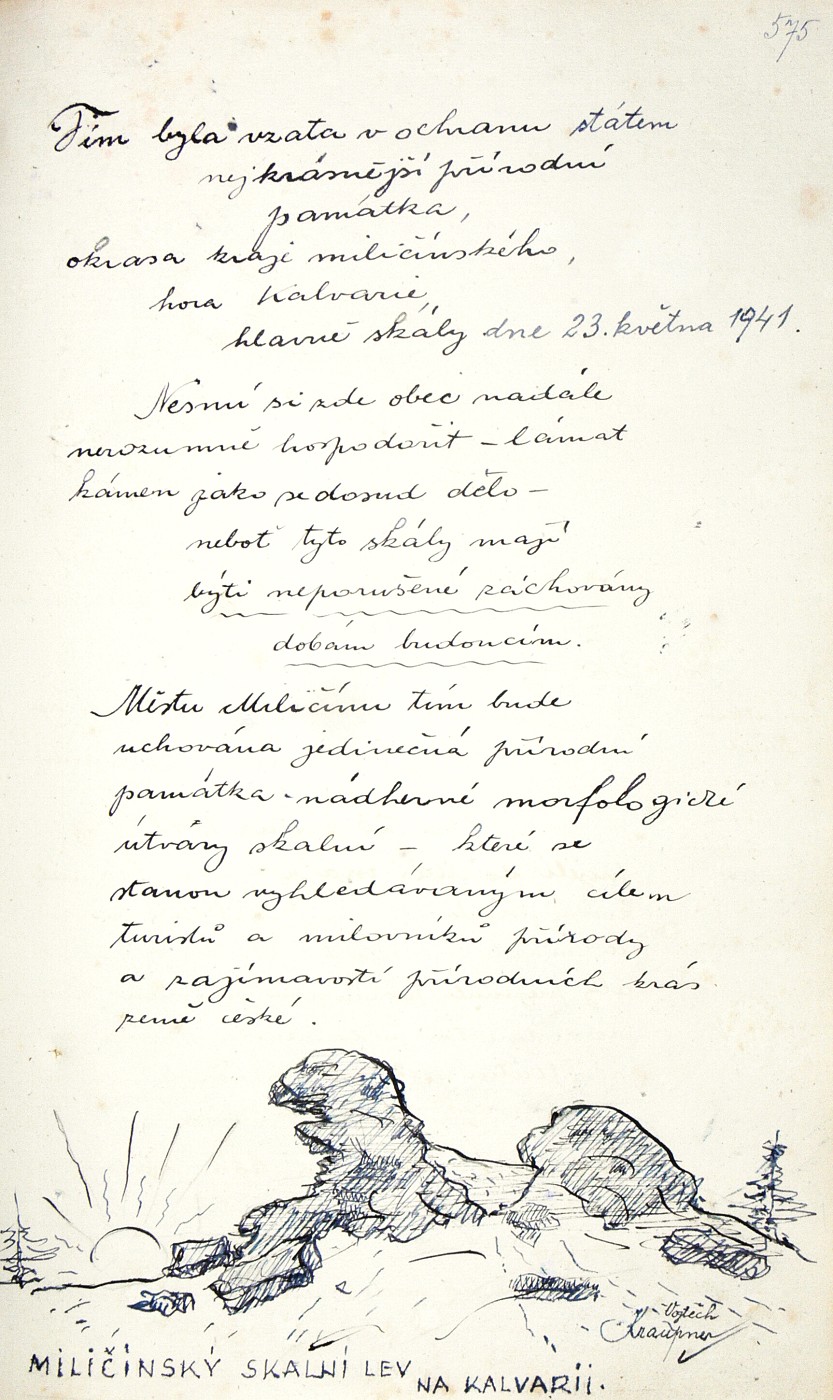 575
Tím byla vzata v ochranu státem
nejkrásnější přírodní
památka,
okrasa kraje miličínského,
hora Kalvarie,
hlavně skály dne 23. května 1941.
Nesmí si zde obec nadále
nerozumně hospodařit – lámat
kámen jako se dosud dělo –
neboť tyto skály mají
býti neporušené zachovány
dobám budoucím.
Městu Miličínu tím bude
uchována jedinečná přírodní
památka - nádherné morfologické
útvary skalní – které se
stanou vyhledávaným cílem
turistů a milovníků přírody
a zajímavostí přírodních krás
země české.
Vojtěch
Kraupner
MILIČÍNSKÝ SKALNÍ LEV NA KALVARII.